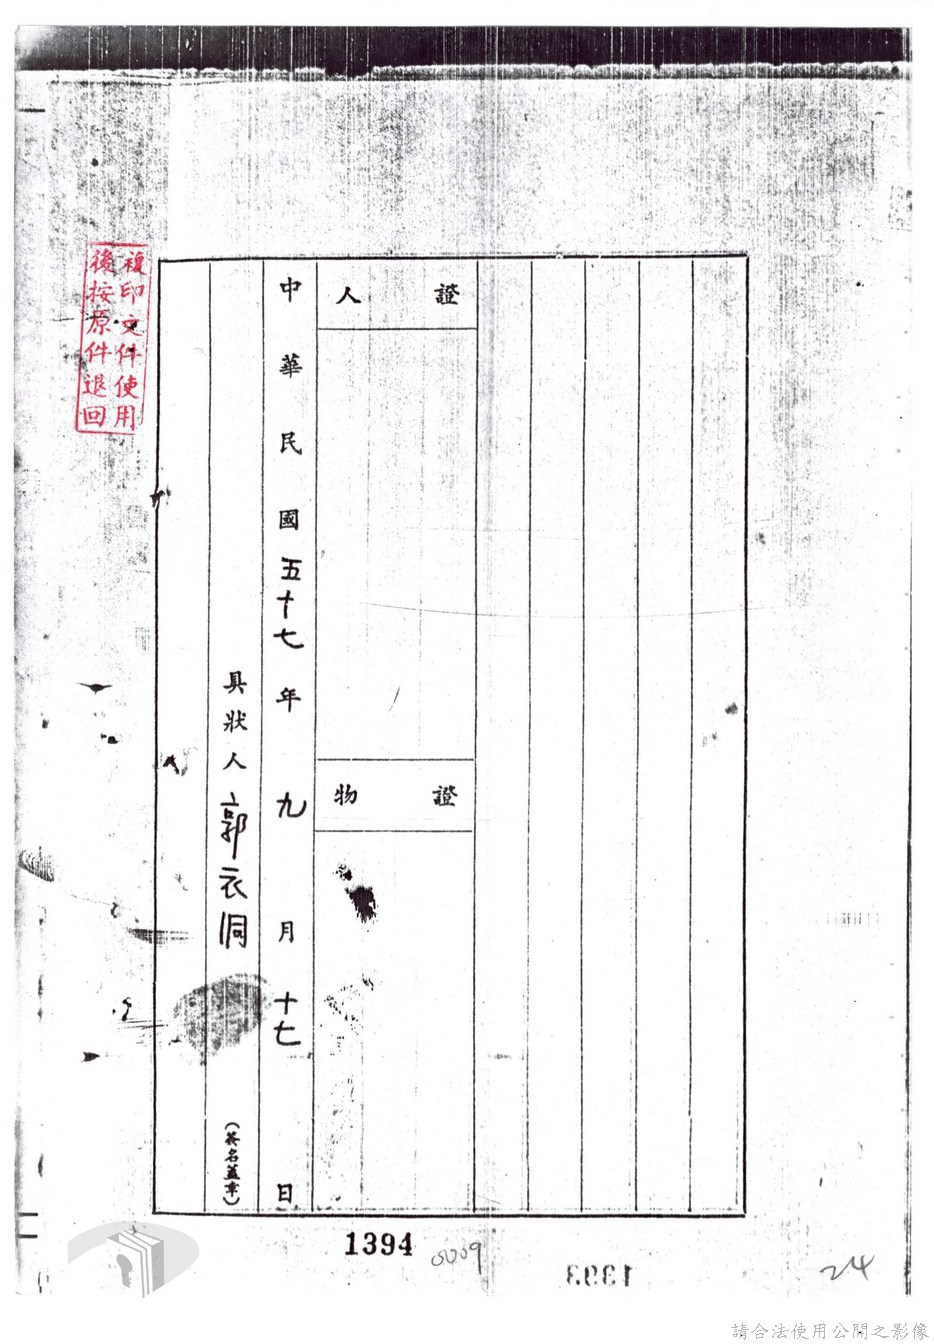 證人
證物
中華民國五十七年九月十七日
具狀人郭衣洞(簽名蓋章)
複印文件使用
後按原件退回
1394
0009
1393
24
請合法使用公開之影像